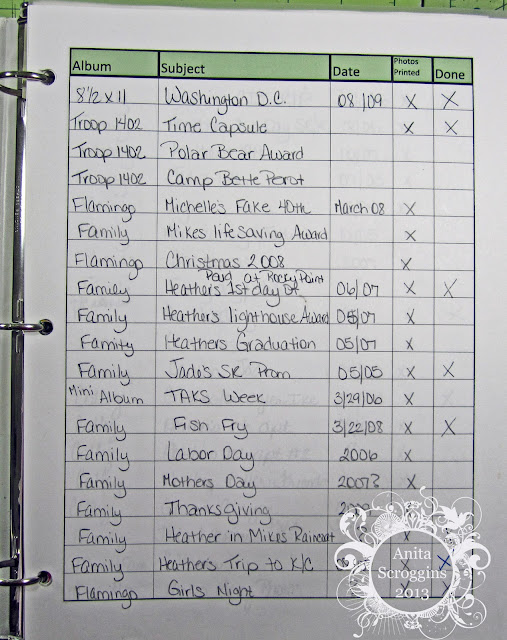 Album Subject Date Photos Printed Done
8½ x 11 Washington D.C. 08/09 X X
Troop 1402 Time Capsule X X
Troop 1402 Polar Bear Award
Troop 1402 Camp Bette Perot
Flamingo Michelle's Fake 40th March 08 X
Family Mikes lifesaving Award X
Flamingo Christmas 2008 X
Family Heather's 1st day of Paid at Rocky Point 06/07 X X
Family Heather's lighthouse Award 05/07 X
Family Heathers Graduation 05/07 X
Family Jade's SR Prom 05/05 X X
Mini Album TAKS Week 3/29/06 X
Family Fish Fry 3/22/08 X X
Family Labor Day 2006 X
Family Mothers Day 2007? X
Family Thanksgiving
Family Heather in Mikes Raincoat X
Family Heather's Trip to K/C X
Flamingo Girls Night
Anita
Scroggins
2013